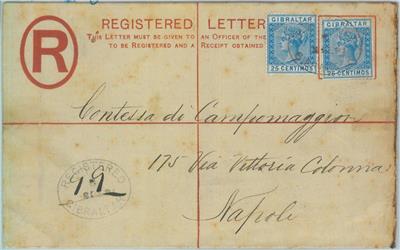 REGISTERED LETTER
THIS LETTER MUST BE GIVEN TO AN OFFICER OF THE
TO BE REGISTERED AND A RECEIPT OBTAINED
R
GIBRALTAR
25 CENTIMOS
GIBRALTAR
25 CENTIMOS
Contessa di Campomaggior
175 Via Vittoria Colonna
Napoli
REGISTERED
GIBRALTAR